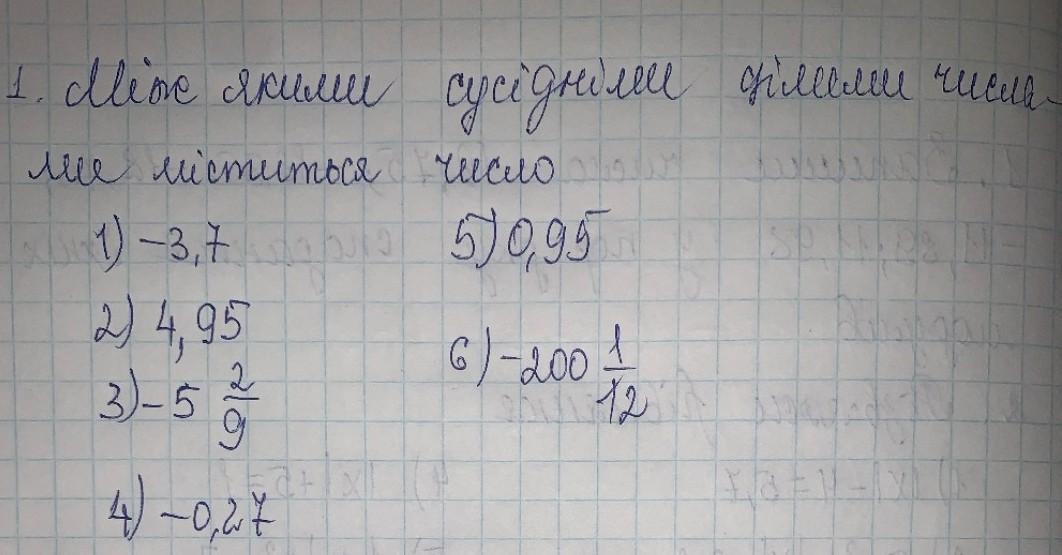 1. Між якими сусідніми цілими числа-
ми міститься число
1) -3,7
5) 0,95
2) 4,95
6) -200 1/12
3) -5 2/9
4) -0,27